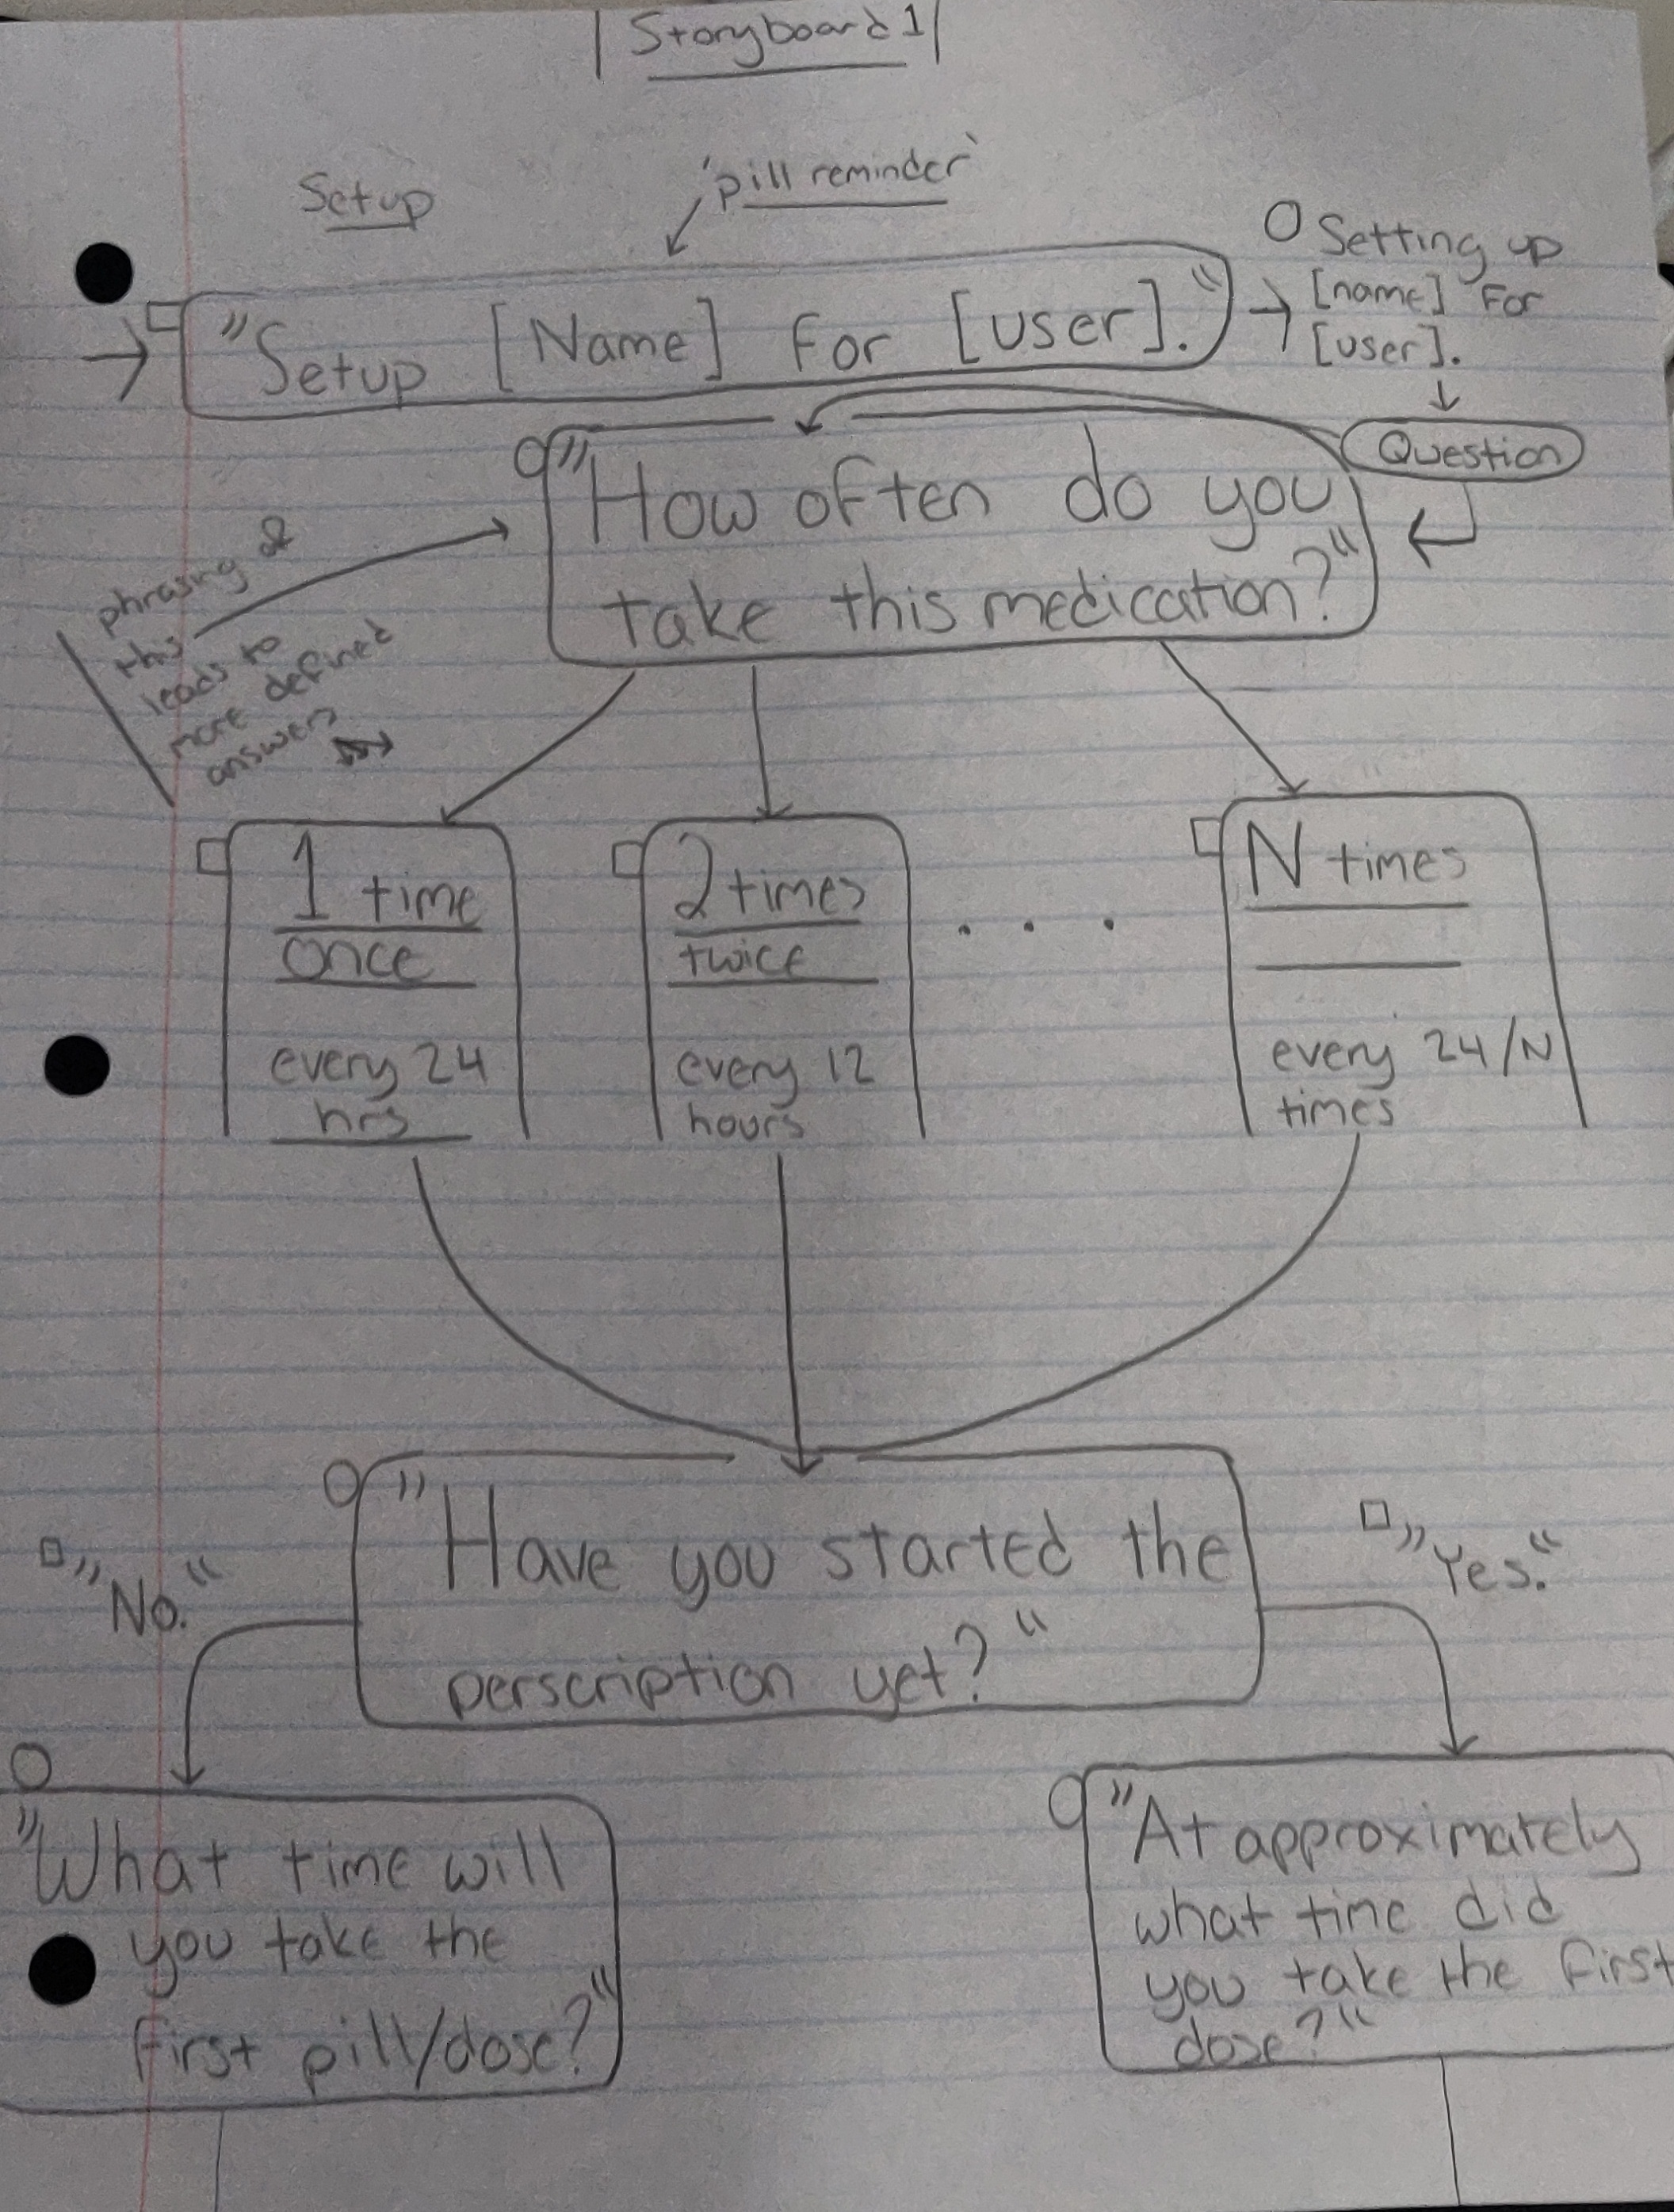 Storyboard 1
Setup
'pill reminder'
"Setup [Name] for [user]."
Setting up
[name] for
[user].
Question
"How often do you
take this medication?"
phrasing of
this
leads to
more defined
answers
1 time
once
every 24
hrs
2 times
twice
every 12
hours
. . .
N times
every 24/N
times
"Have you started the
perscription yet?"
"No."
"Yes."
"What time will
you take the
first pill/dose?"
"At approximately
what time did
you take the first
dose?"